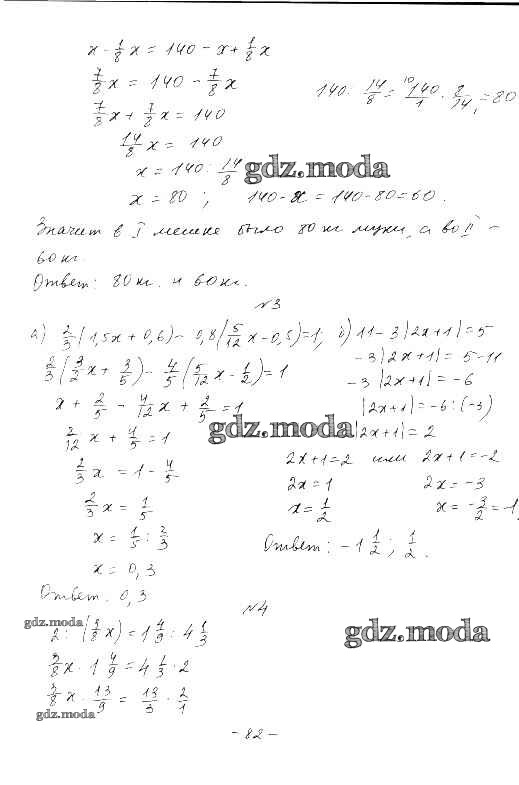 x - 1/8 x = 140 - x + 1/8 x
7/8 x = 140 - 7/8 x
7/8 x + 7/8 x = 140
140 : 14/8 = 140/1 · 8/14 = 80
14/8 x = 140
x = 140 : 14/8
gdz.moda
x = 80 ; 140 - x = 140 - 80 = 60.
Значит в I мешке было 80 кг муки, а во II -
60 кг.
Ответ: 80 кг. и 60 кг.
№3
а) 2/3 (1,5x + 0,6) - 0,8 (5/12 x - 0,5) = 1;
2/3 (3/2 x + 3/5) - 4/5 (5/12 x - 1/2) = 1
x + 2/5 - 4/12 x + 2/5 = 1
gdz.moda
12 x + 4/5 = 1
2/3 x = 1 - 4/5
2/3 x = 1/5
x = 1/5 : 2/3
x = 0,3
Ответ: 0,3
б) 11 - 3 |2x+1| = 5
-3 |2x+1| = 5 - 11
-3 |2x+1| = -6
|2x+1| = -6 : (-3)
|2x+1| = 2
2x+1=2 или 2x+1=-2
2x=1 2x=-3
x= 1/2 x= -3/2 = -1,
Ответ: -1 1/2 ; 1/2 .
№4
gdz.moda
2 : (3/8 x) = 1 4/9 : 4 1/3
gdz.moda
3/8 x · 1 4/9 = 4 1/3 · 2
3/8 x · 13/9 = 13/3 · 2/1
gdz.moda
- 82 -